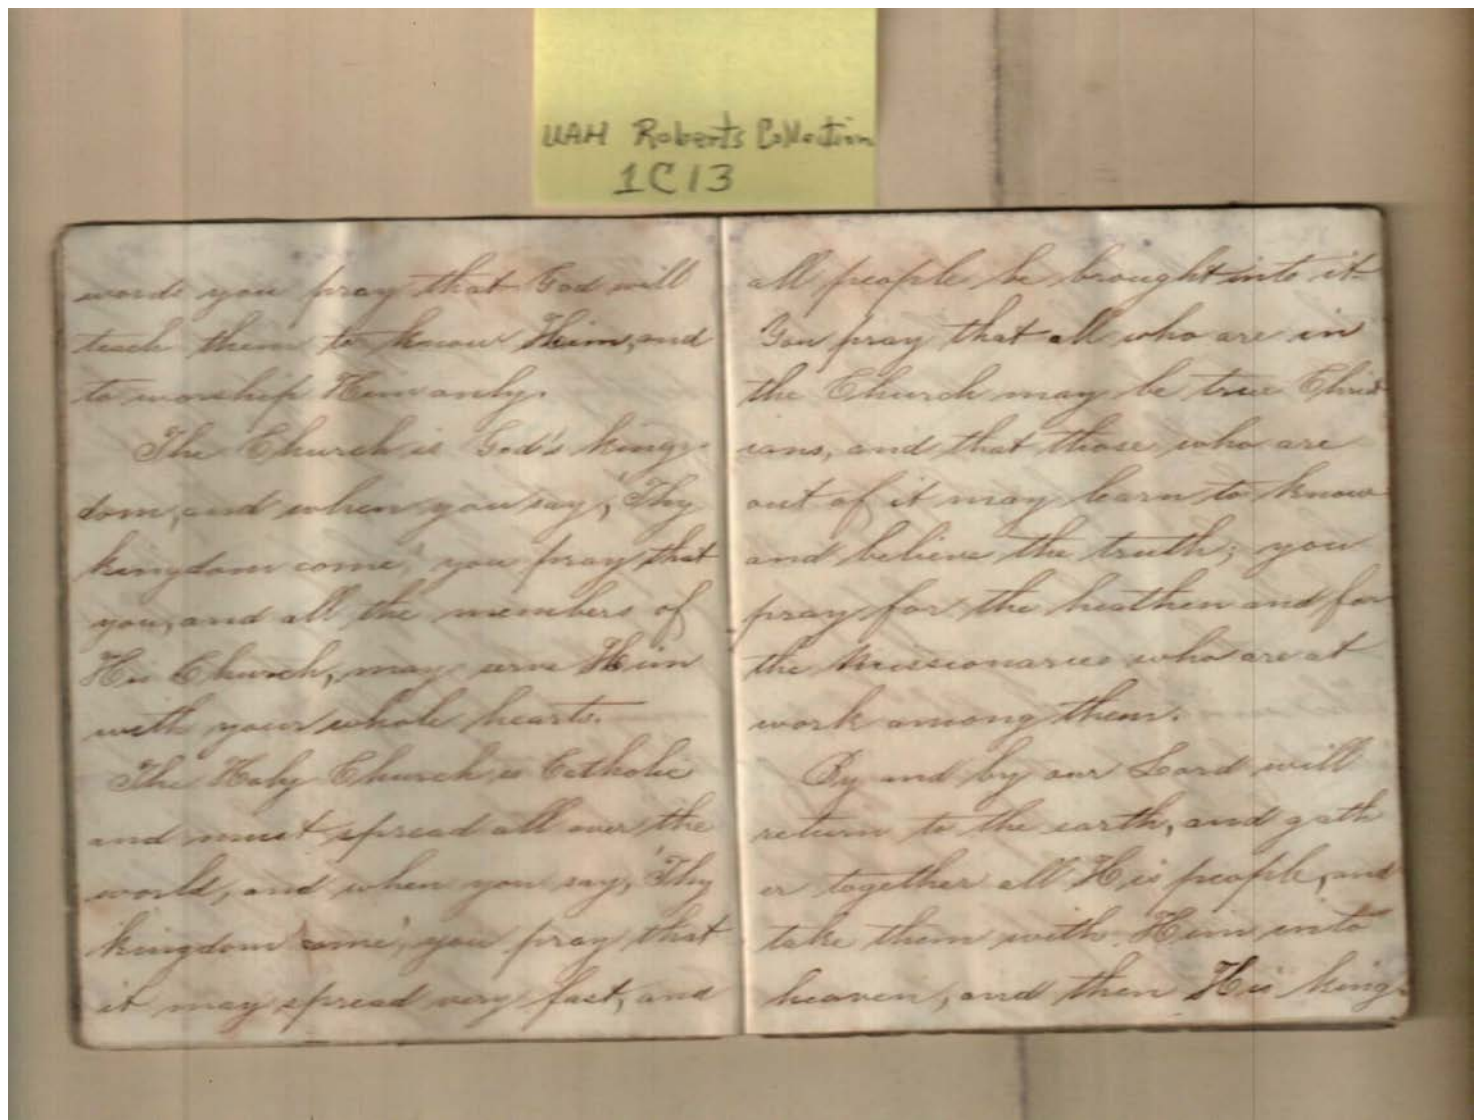 UAH Roberts Collection
1C13
words you pray that God will
teach them to know Him, and
to worship Him only.
The Church is God's king-
dom, and when you say, 'Thy
kingdom come,' you pray that
you, and all the members of
His Church, may serve Him
with your whole hearts.
The Holy Church is Catholic
and must spread all over the
world, and when you say, 'Thy
kingdom come', you pray that
it may spread very fast, and
all people be brought into it
You pray that all who are in
the Church may be true Christ
ians, and that those who are
out of it may learn to know
and believe the truth; you
pray for the heathen and for
the Missionaries who are at
work among them.
By and by our Lord will
return to the earth, and gath
er together all His people, and
take them with Him into
heaven, and then His king-